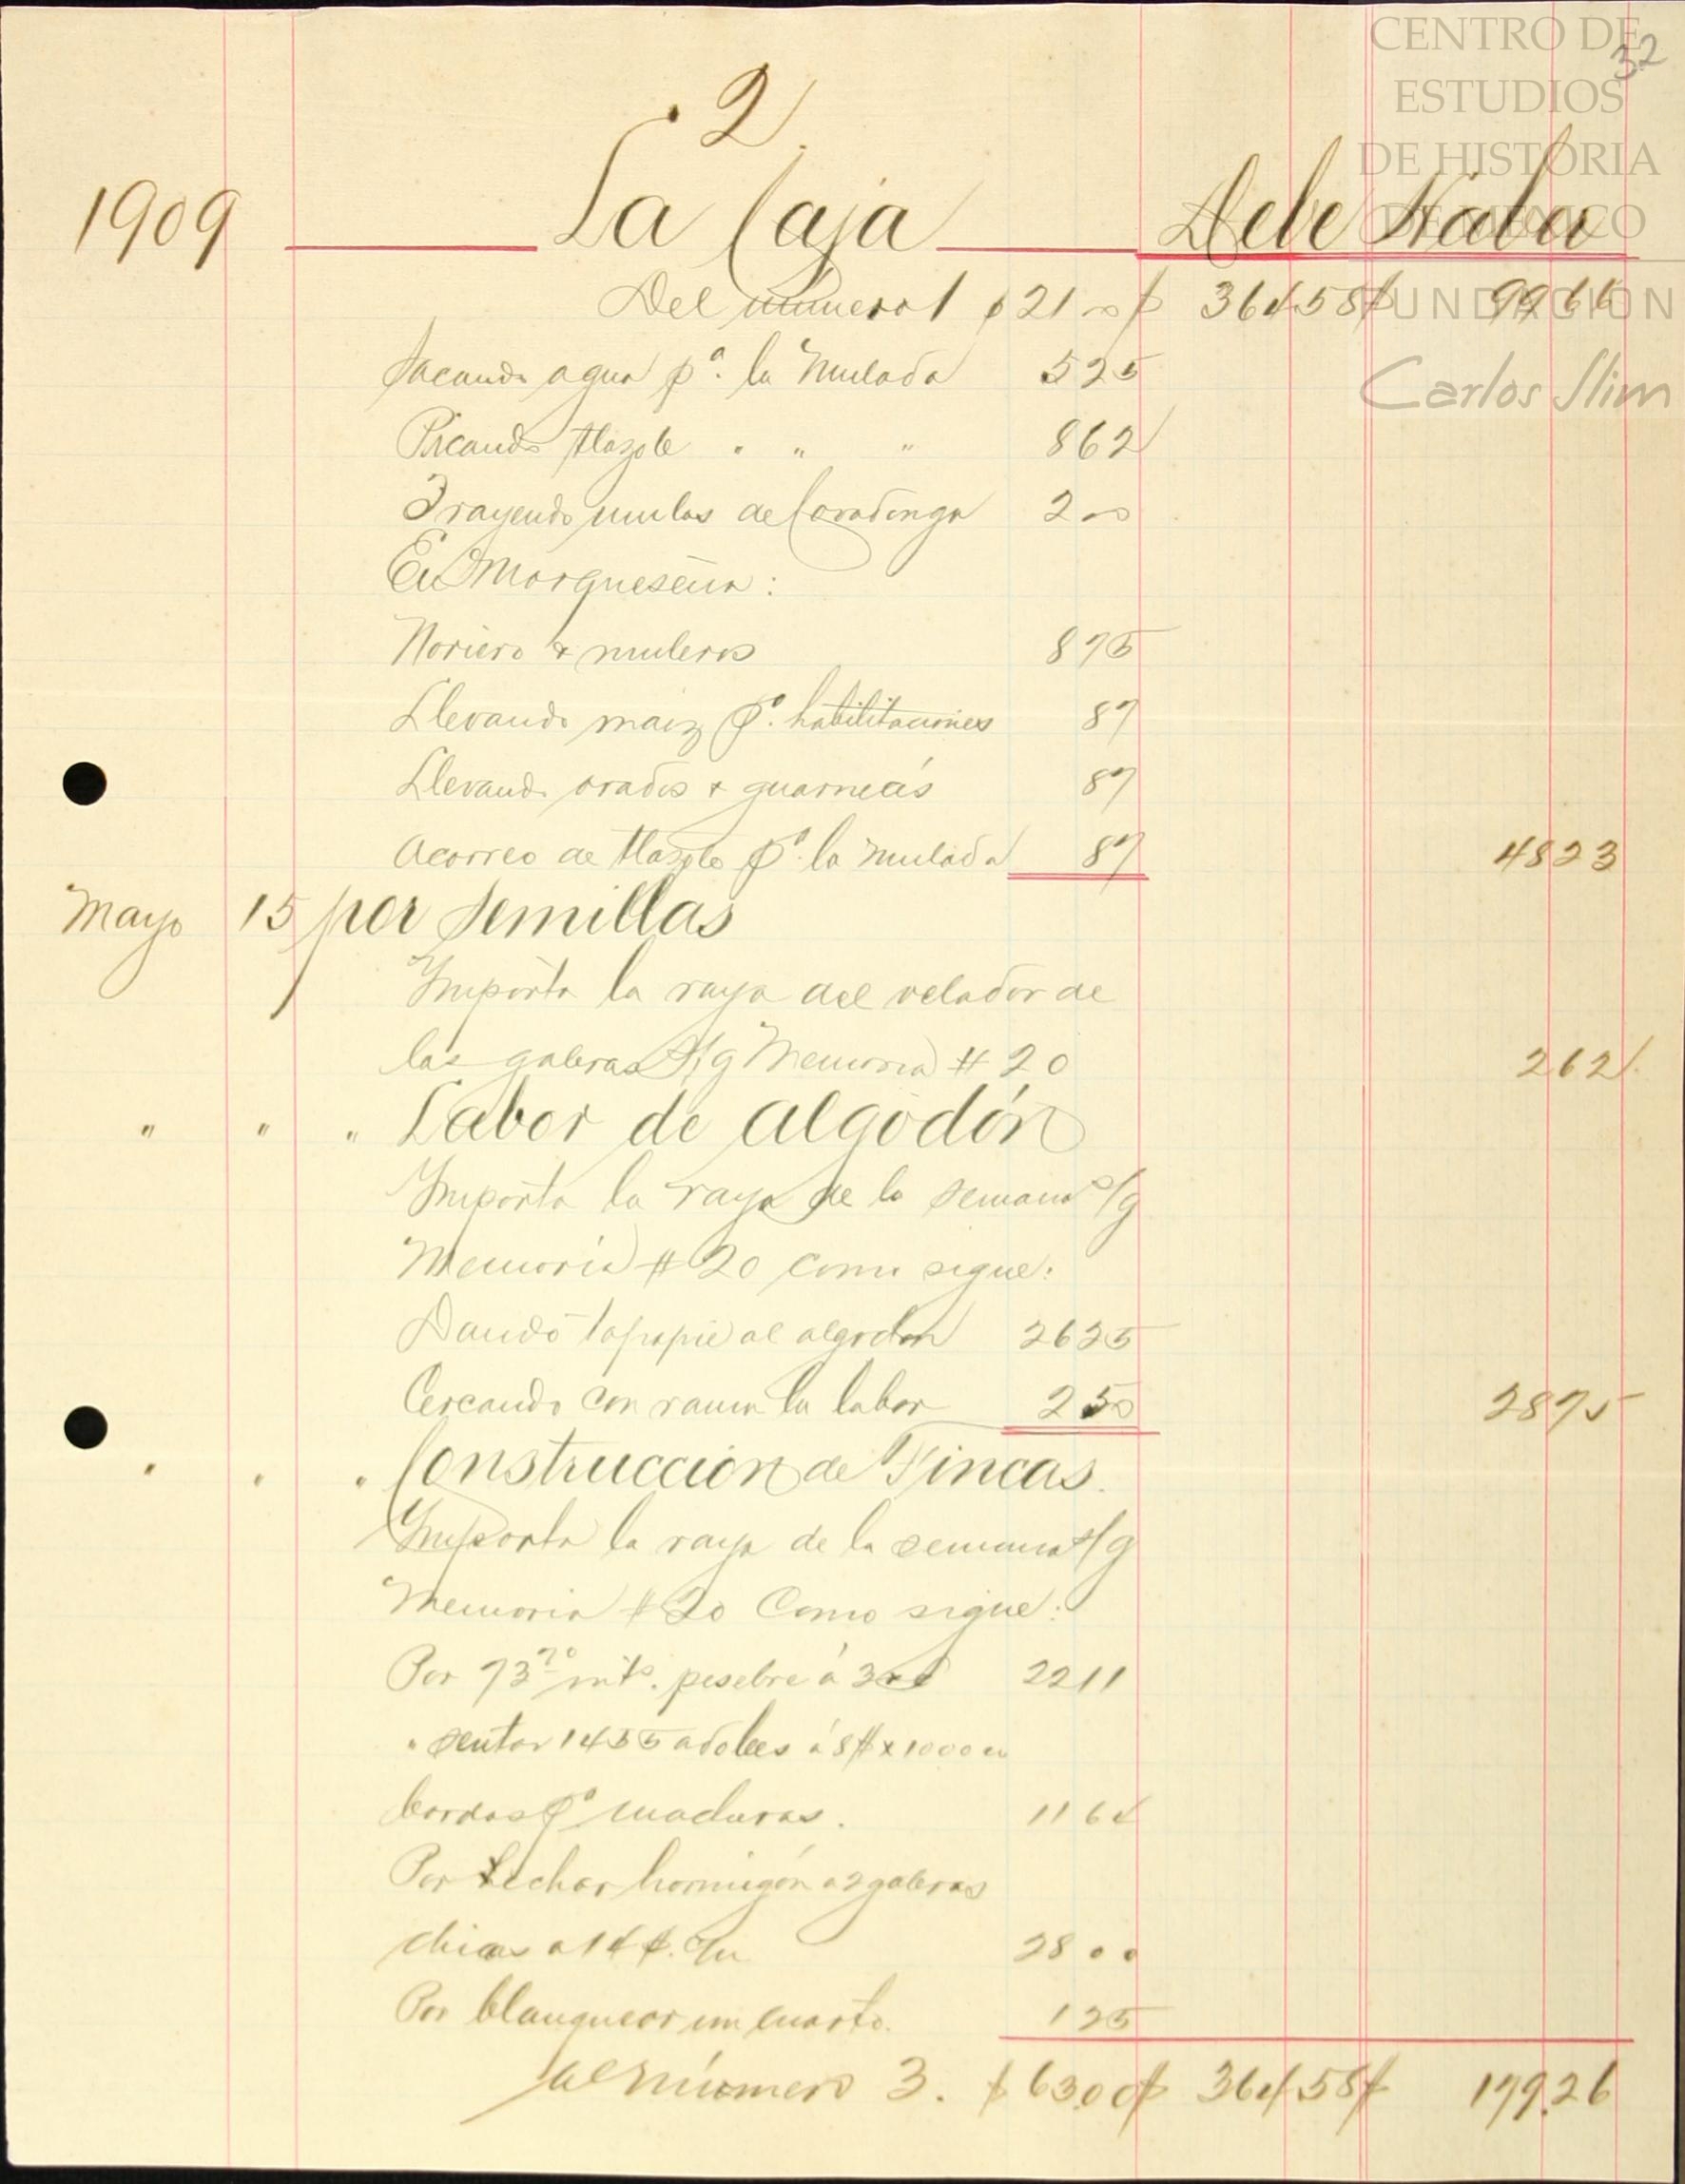 CENTRO DE
ESTUDIOS
DE HISTORIA
DE MÉXICO
FUNDACIÓN
Carlos Slim
32
2.
1909 La Caja Debe Haber
Del número 1 $ 21 00 $ 364 58 $ 99 66
Sacando agua pª. la mulada 5 25
Picando tlazole " " " 8 62
Trayendo mulas de Covadonga 2 00
En Marqueseña:
Noriero & muleros 8 75
Llevando maiz pª. habilitaciones 87
Llevando arados & guarnecás 87
Acarreo de tlazole pª. la mulada 87 48 23
Mayo 15 por Semillas
Importa la raya del velador de
las galeras S/g Memoria # 20 2 62
" " " Labor de algodón
Importa la raya de la semana s/g
Memoria # 20 como sigue:
Dando tapapie al algodon 26 25
Cercando con rama la labor 2 50 28 75
" " " Construccion de Fincas.
Importa la raya de la semana s/g
Memoria # 20 Como sigue:
Por 73 70 mts. pesebre á 30 ¢ 22 11
" sentar 1455 adobes á 8 $ x 1000 en
bardas pª maduras. 11 64
Por echar hormigón a 2 galeras
chicas a 14 $. 28 00
Por blanquear un cuarto. 1 25
al número 3. $ 63.00 $ 364 58 $ 179.26